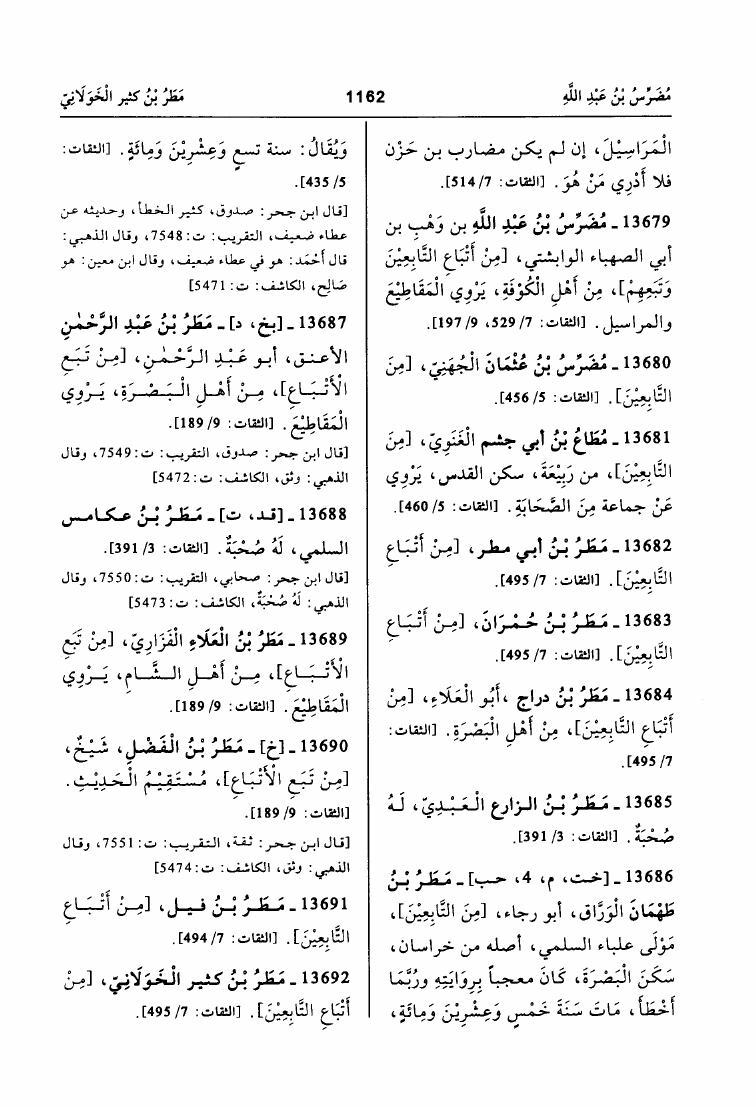 مُضَرِّسُ بْنُ عَبْدِ اللَّهِ
1162
مَطَرُ بْنُ كثير الْخَوْلَانِيّ
الْمَرَاسِيْلَ، إن لم يكن مضارب بن حَزْن
فلا أَدْرِي مَنْ هُوَ. [الثقات: 7/ 514].
13679 ـ مُضَرِّسُ بْنُ عَبْدِ اللَّهِ بن وَهْبِ بن
أبي الصهباء الوابشتي، [مِنْ أَتْبَاعِ التَّابِعِيْنَ
وَتَبَعِهِمْ]، مِنْ أَهْلِ الْكُوْفَةِ، يَرْوِي الْمَقَاطِيْعَ
والمراسيل. [الثقات: 7/ 529، 9/ 197].
13680 ـ مُضَرِّسُ بْنُ عُثْمَانَ الْجُهَنِيّ، [مِنَ
التَّابِعِيْنَ]. [الثقات: 5/ 456].
13681 ـ مُطَاعُ بْنُ أبي جشم الْغَنَوِيّ، [مِنَ
التَّابِعِيْنَ]، من رَبِيْعَةَ، سكن القدس، يَرْوِي
عَنْ جماعة مِنَ الصَّحَابَةِ. [الثقات: 5/ 460].
13682 ـ مَطَرُ بْنُ أبي مطر، [مِنْ أَتْبَاعِ
التَّابِعِيْنَ]. [الثقات: 7/ 495].
13683 ـ مَطَرُ بْنُ حُمْرَانَ، [مِنْ أَتْبَاعِ
التَّابِعِيْنَ]. [الثقات: 7/ 495].
13684 ـ مَطَرُ بْنُ دراج ،أَبُو الْعَلَاءِ، [مِنْ
أَتْبَاعِ التَّابِعِيْنَ]، مِنْ أَهْلِ الْبَصْرَةِ. [الثقات:
7/ 495].
13685 ـ مَطَرُ بْنُ الزارع الْعَبْدِيّ، لَهُ
صُحْبَةٌ. [الثقات: 3/ 391].
13686 ـ [خت، م، 4، حب] ـ مَطَرُ بْنُ
طَهْمَانَ الْوَرَّاق، أبو رجاء، [مِنَ التَّابِعِيْنَ]،
مَوْلَى علباء السلمي، أصله من خراسان،
سَكَنَ الْبَصْرَةَ، كَانَ معجباً بِرِوَايَتِهِ ورُبَّمَا
أَخْطَأَ، مَاتَ سَنَةَ خَمْسٍ وَعِشْرِيْنَ وَمِائَةٍ،
وَيُقَالُ: سنة تسعٍ وَعِشْرِيْنَ وَمِائَةٍ. [الثقات:
5/ 435].
[قال ابن حجر: صدوق، كثير الخطأ، وحديثه عن
عطاء ضعيف، التقريب: ت: 7548، وقال الذهبي:
قال أَحْمَد: هو في عطاء ضعيف، وقال ابن معين: هو
صَالِح، الكاشف: ت: 5471]
13687 ـ [بخ، د] ـ مَطَرُ بْنُ عَبْدِ الرَّحْمٰنِ
الأعنق، أبو عَبْدِ الرَّحْمٰنِ، [مِنْ تَبَعِ
الْأَتْبَاعِ]، مِنْ أَهْلِ الْبَصْرَةِ، يَرْوِي
الْمَقَاطِيْعَ. [الثقات: 9/ 189].
[قال ابن حجر: صدوق، التقريب: ت: 7549، وقال
الذهبي: وثق، الكاشف: ت: 5472]
13688 ـ [قد، ت] ـ مَطَرُ بْنُ عكامس
السلمي، لَهُ صُحْبَةٌ. [الثقات: 3/ 391].
[قال ابن حجر: صحابي، التقريب: ت: 7550، وقال
الذهبي: لَهُ صُحْبَةٌ، الكاشف: ت: 5473]
13689 ـ مَطَرُ بْنُ الْعَلَاءِ الْفَزَارِيّ، [مِنْ تَبَعِ
الْأَتْبَاعِ]، مِنْ أَهْلِ الشَّامِ، يَرْوِي
الْمَقَاطِيْعَ. [الثقات: 9/ 189].
13690 ـ [خ] ـ مَطَرُ بْنُ الْفَضْلِ، شَيْخٌ،
[مِنْ تَبَعِ الْأَتْبَاعِ]، مُسْتَقِيْمُ الْحَدِيْثِ.
[الثقات: 9/ 189].
[قال ابن حجر: ثقة، التقريب: ت: 7551، وقال
الذهبي: وثق، الكاشف: ت: 5474]
13691 ـ مَطَرُ بْنُ فيل، [مِنْ أَتْبَاعِ
التَّابِعِيْنَ]. [الثقات: 7/ 494].
13692 ـ مَطَرُ بْنُ كثير الْخَوْلَانِيّ، [مِنْ
أَتْبَاعِ التَّابِعِيْنَ]. [الثقات: 7/ 495].